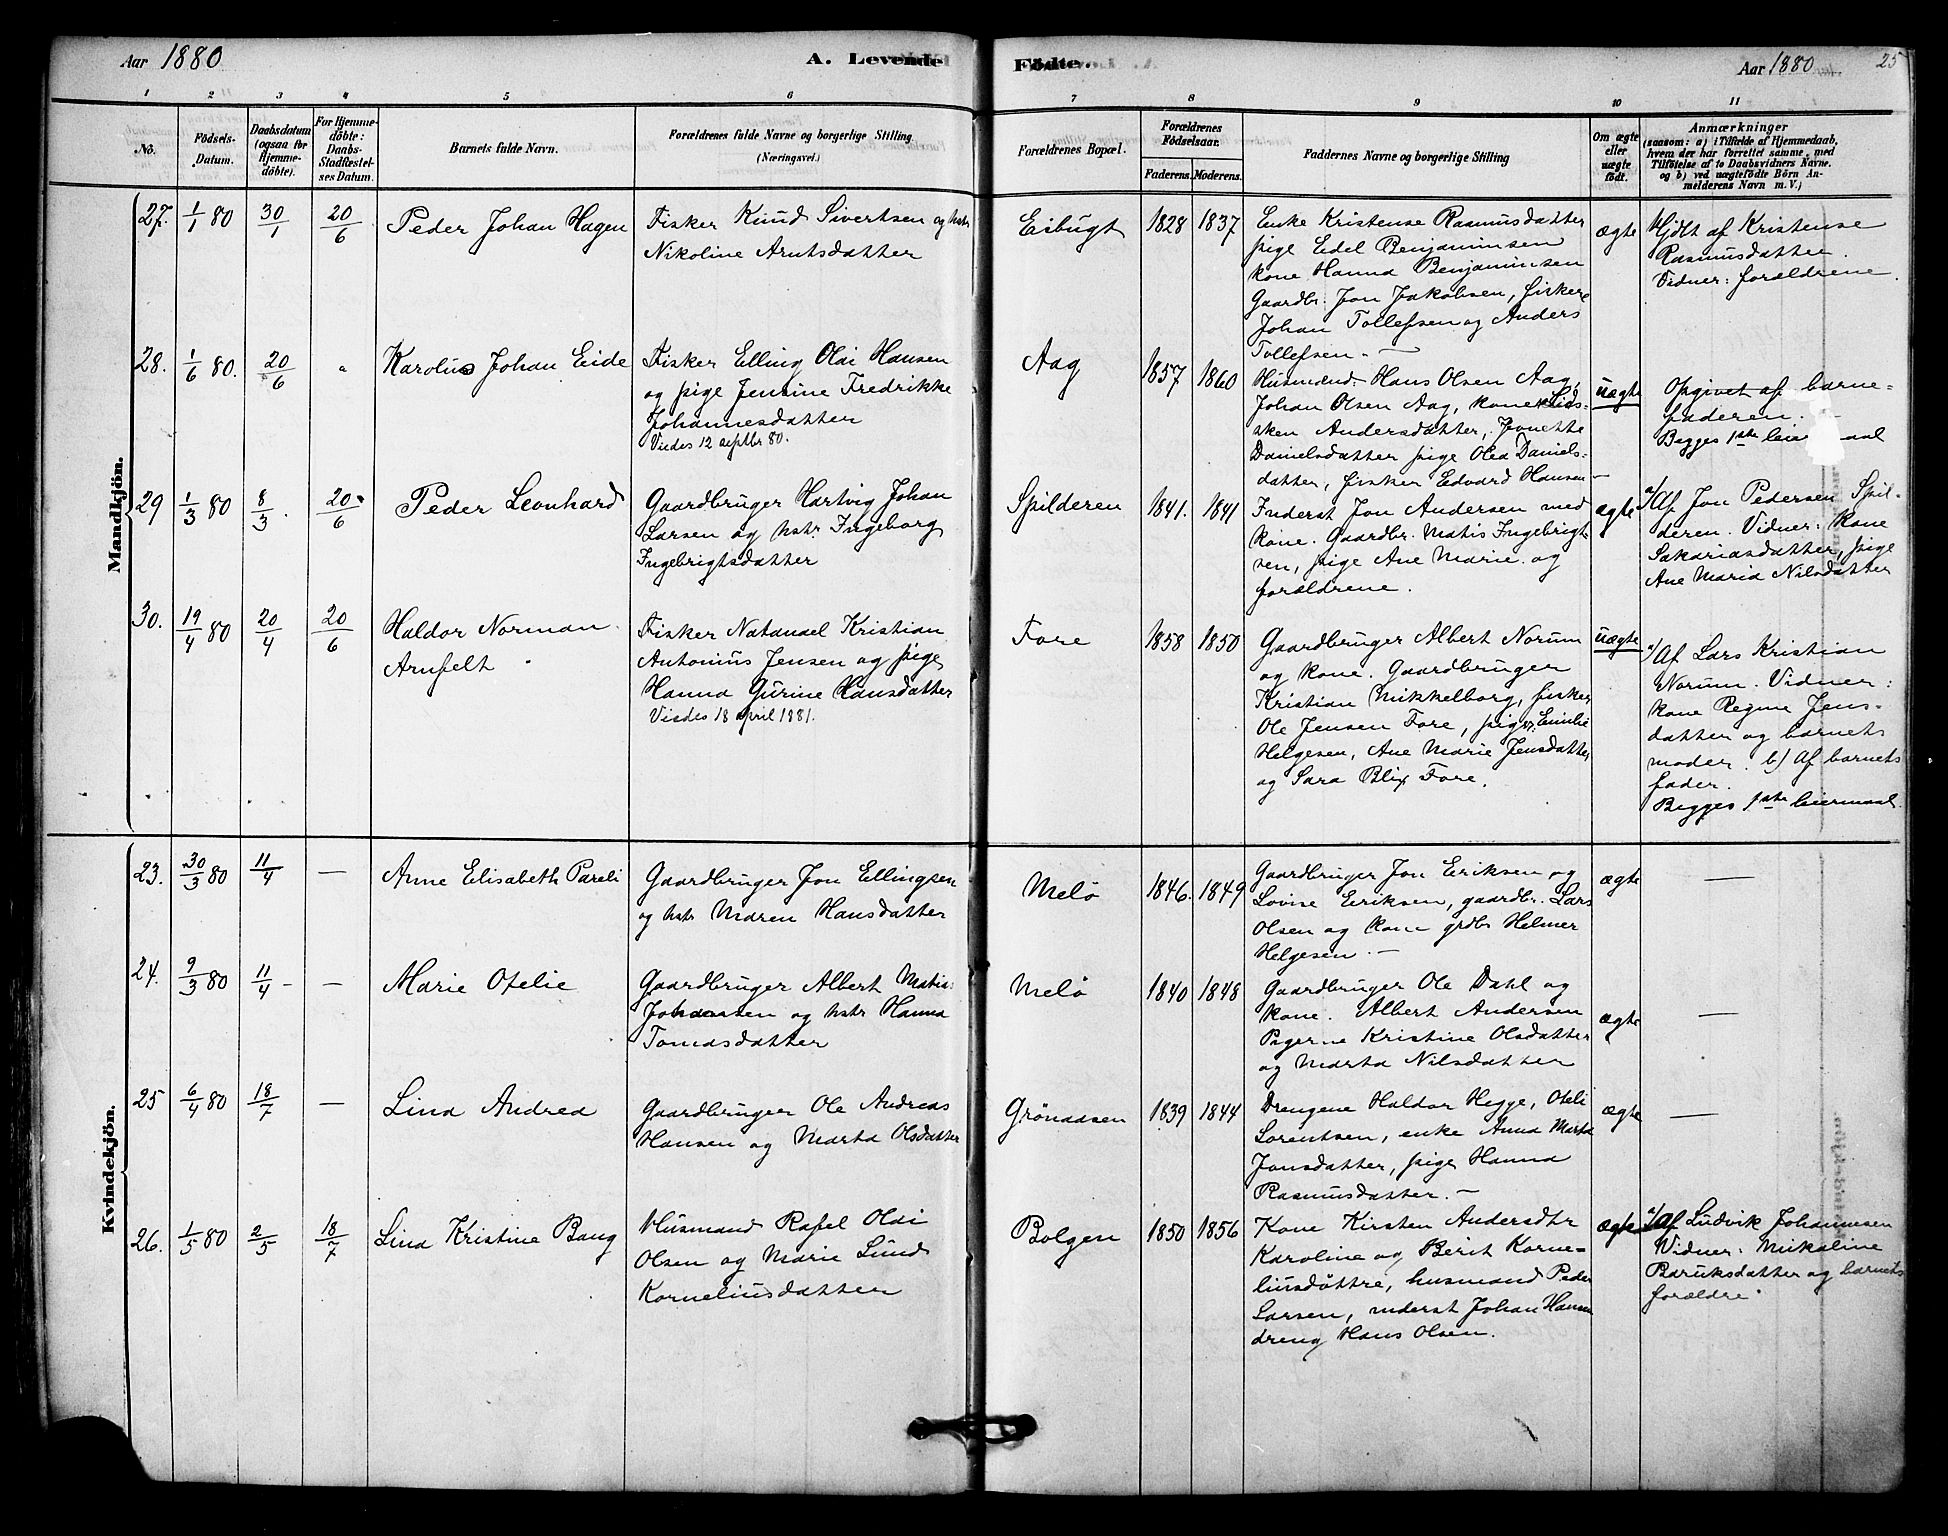 Aar 1880
A. Levende
Födte.
Aar 1880
25
1 2 3 4 5 6 7 8 9 10 11
No.
Födsels-
Datum.
Daabsdatum
(ogsaa for
Hjemme-
döbte).
For Hjemme-
döbte:
Daabs-
Stadfæstel-
ses Datum.
Barnets fulde Navn.
Forældrenes fulde Navne og borgerlige Stilling.
(Næringsvei.)
Forældrenes Bopæl.
Forældrenes
Födselsaar.
Faderens. Moderens.
Faddernes Navne og borgerlige Stilling
Om ægte
eller
uægte
födt.
Anmærkninger
(saasom: a) i Tilfælde af Hjemmedaab,
hvem der har forrettet samme, med
Tilföielse af to Daabsvidners Navne.
og b) ved uægtefödte Börn An-
melderens Navn m. V.)
Mandkjön.
27. 1/1 80 30/1 20/6
Peder Johan Hagen
Fisker Knud Sivertsen og hstr
Nikoline Arntsdatter
Esbugt
1828 1837
Enke Kristense Rasmusdatter
pige Edel Benjaminsen
kone Hanna Benjaminsen
Gaardbr. Jon Jakobsen, fiskere
Johan Tollefsen og Anders
Tollefsen. —
ægte
Hjdlt af Kristense
Rasmusdatter.
Vidner: forældrene.
28. 1/6 80. 20/6 "
Karolus Johan Eide
Fisker Elling Olai Hansen
og pige Jensine Fredrikke
Johannesdatter
Viedes 12 septbr 80.
Aag
1857 1860
Husmænd. Hans Olsen Aag,
Johan Olsen Aag, kone
Andersdatter, Jonette
Danielsdatter pige Olea Daniels-
datter, fisker Edvard Hansen —
uægte
Opgivet af barne-
faderen. —
Begges 1ste leiermaal
29 1/3 80 8/3. 20/6
Peder Leonhard
Gaardbruger Hartvig Johan
Larsen og hstr. Ingeborg
Ingebrigtsdatter
Spilderen
1841. 1841
Inderst Jon Andersen med
kone. Gaardbr. Matis Ingebrigt-
sen, pige Ane Marie. og
forældrene.
ægte
a/ Af Jon Pedersen Spil-
deren. Vidner: kone
Sakariasdatter, pige
Ane Maria Nilsdatter
30. 19/4 80 20/4 20/6
Haldor Norman
Arnfelt
Fisker Natanael Kristian
Antonius Jensen og pige
Hanna Gurine Hansdatter
Viedes 18 april 1881.
Fore
1858 1850
Gaardbruger Albert Norum
og kone. Gaardbruger
Kristian Mikkelborg, fisker
Ole Jensen Fore, pigr. Emilie
Helgesen, Ane Marie Jensdatter
og Sara Blix Fore.
uægte
a/ Af Lars Kristian
Norum. Vidner:
kone Regine Jens-
datter og barnets
moder. b) Af barnets
fader.
Begges 1ste leiermaal.
Kvindekjön.
23. 30/3 80 11/4 —
Anne Elisabeth Pareli
Gaardbruger Jon Ellingsen
og hstr Maren Hansdatter
Melö
1846. 1849
Gaardbruger Jon Eriksen og
Lovise Eriksen, gaardbr. Lars
Olsen og kone grdbr Helmer
Helgesen. —
ægte
—
24. 9/3 80 11/4 – —
Marie Otelie
Gaardbruger Albert Matias
Johansen og hstr Hanna
Tomasdatter
Melö
1840 1848
Gaardbruger Ole Dahl og
kone. Albert Andersen
Pigerne Kristine Olsdatter
og Marta Nilsdatter
ægte
—
25 6/4 80 18/7 —
Lina Andrea
Gaardbruger Ole Andreas
Hansen og Marta Olsdatter
Grönaasen
1839 1844
Drengene Haldor Hegge, Oteli
Lorentsen, enke Anna Marta
Jonsdatter, pige Hanna
Rasmusdatter. —
ægte
—
26. 1/5 80 2/5 18/7
Lina Kristine Bang
Husmand Rafel Olai
Olsen og Marie Lund
Korneliusdatter
Bolgen
1850 1856
Kone Kirsten Andersdtr
Karoline og Berit Korne-
liusdøttre, husmand Peder
Larsen, inderst Johan Hansen
dreng Hans Olsen.
ægte
a/ Af Ludvik Johannesen
Vidner: Mikaline
Baruksdatter og barnets
forældre.